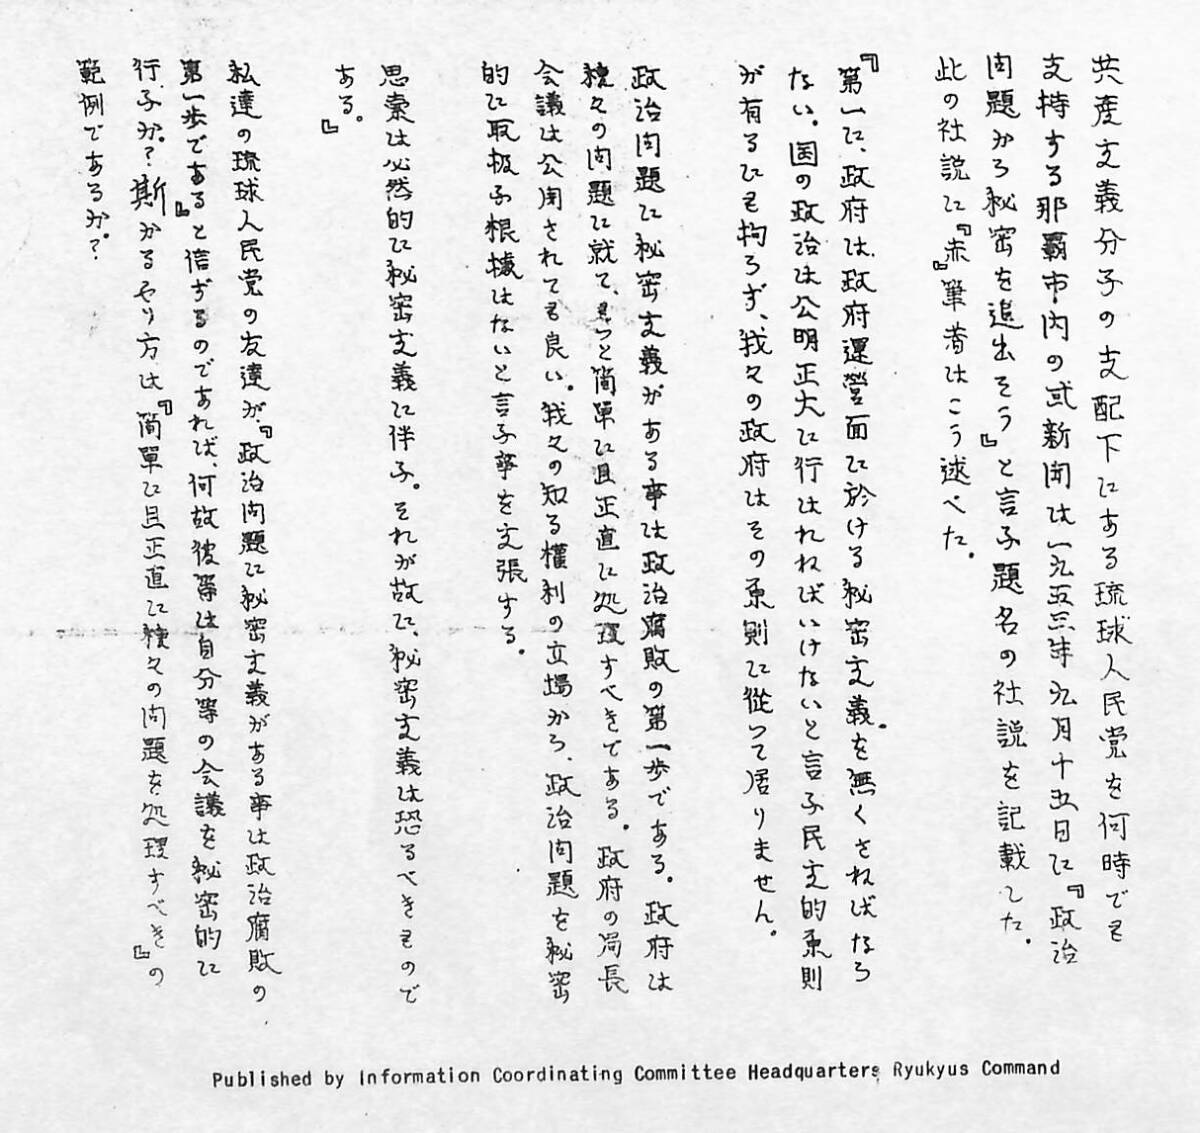 共産主義分子の支配下にある琉球人民党を何時でも
支持する那覇市内の或新聞は一九五三年九月十五日に『政治
問題から秘密を追出そう』と言う題名の社説を記載した。
此の社説に『赤』筆者はこう述べた。
『第一に、政府は、政府運営面に於ける秘密主義。を無くさねばなら
ない。国の政治は公明正大に行はれねばいけないと言う民主的原則
が有るにも拘らず、我々の政府はその原則に従って居りません。
政治問題に秘密主義がある事は政治腐敗の第一歩である。政府は
種々の問題に就て、もっと簡単に且正直に処理すべきである。政府の局長
会議は公開されても良い。我々の知る權利の立場から、政治問題を秘密
的に取扱う根據はないと言う事を主張する。
思索は必然的に秘密主義に伴う。それが故に、秘密主義は恐るべきもので
ある。』
私達の琉球人民党の友達が、『政治問題に秘密主義がある事は政治腐敗の
第一歩である』と信ずるのであれば、何故彼等は自分等の会議を秘密的に
行うか?斯かるやり方は『簡單に且正直に種々の問題を処理すべき』の
範例であるか?
Published by Information Coordinating Committee Headquarters Ryukyus Command